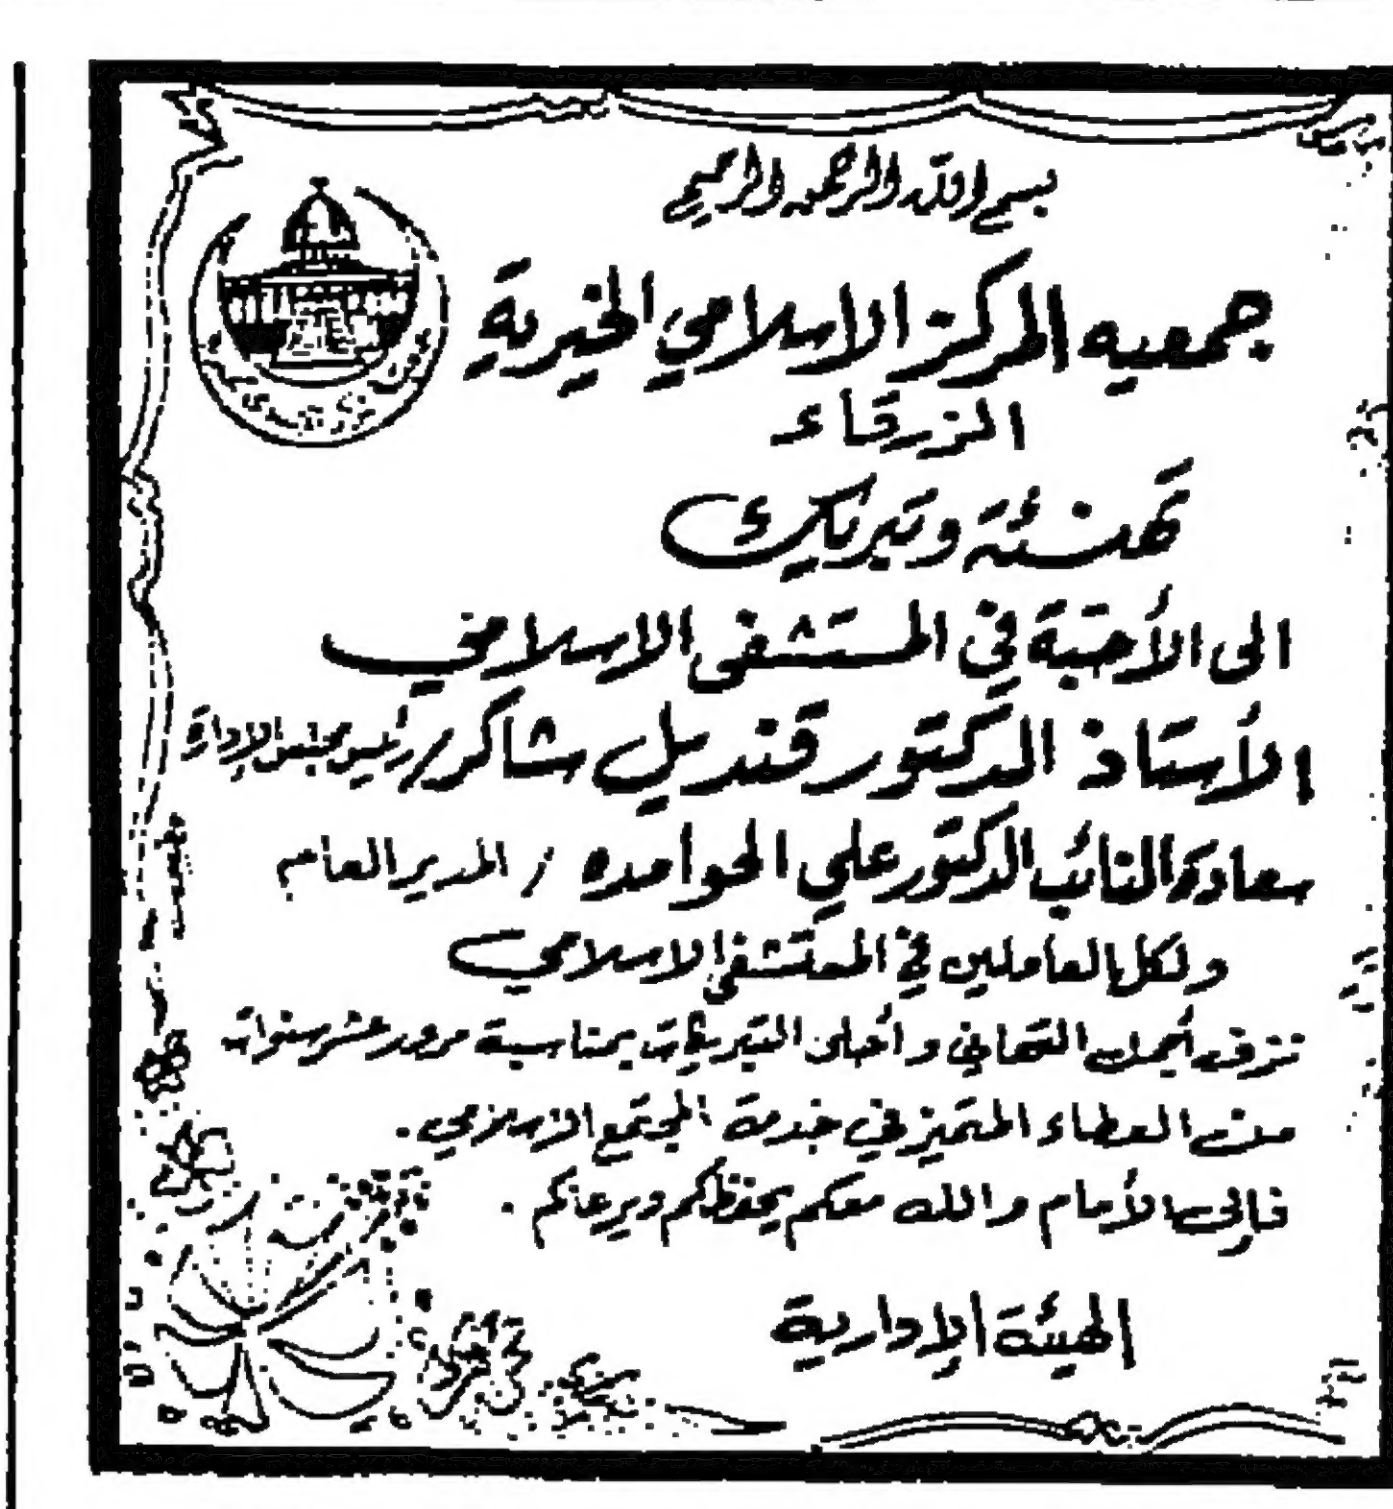 بسم الله الرحمن الرحيم
جمعيه المركز الاسلامي الخيرية
الزرقاء
تهنئة وتبريك
الى الأحبة في المستشفى الاسلامي
الأستاذ الدكتور قنديل شاكر / رئيس مجلس الإدارة
سعادة النائب الدكتور علي الحوامده / المدير العام
ولكل العاملين في المستشفى الاسلامي
نزف أجمل التهاني وأحلى التبريكات بمناسبة مرور عشر سنوات
من العطاء المتميز في خدمة المجتمع الاسلامي .
فإلى الأمام والله معكم يحفظكم ويرعاكم .
الهيئة الإدارية